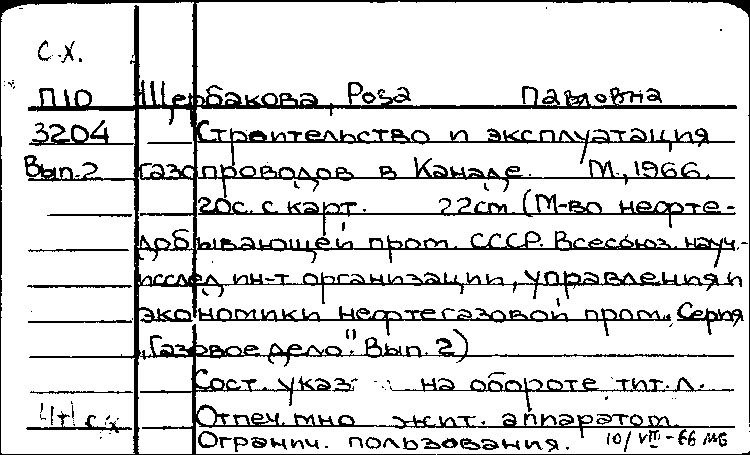 С.Х.
П10 Щербакова, Роза Павловна
3204 Строительство и эксплуатация
Вып.2 газопроводов в Канаде. М., 1966.
20с. с карт. 22см. (М-во нефте-
добывающей пром. СССР. Всесоюз. науч.-
исслед. ин-т организации, управления и
экономики нефтегазовой пром. Серия
"Газовое дело". Вып. 2)
Сост. указ. на обороте тит. л.
с.х Отпеч. мно жит. аппаратом.
Огранич. пользования. 10/VIII-66 МБ